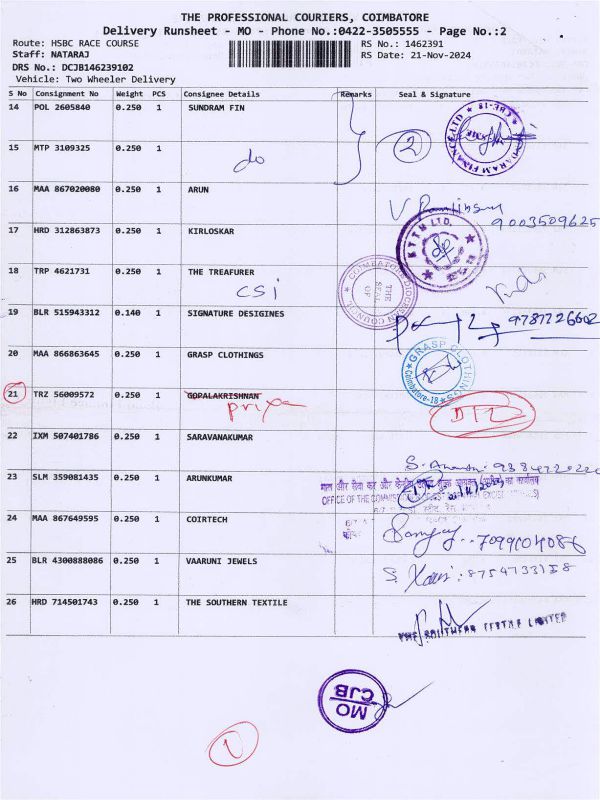 THE PROFESSIONAL COURIERS, COIMBATORE
Delivery Runsheet - MO - Phone No.:0422-3505555 - Page No.:2
Route: HSBC RACE COURSE RS No.: 1462391
Staff: NATARAJ RS Date: 21-Nov-2024
DRS No.: DCJB146239102
Vehicle: Two Wheeler Delivery
S No Consignment No Weight PCS Consignee Details Remarks Seal & Signature
14 POL 2605840 0.250 1 SUNDRAM FIN
15 MTP 3109325 0.250 1 do 2
16 MAA 867020080 0.250 1 ARUN
9003509625
17 HRD 312863873 0.250 1 KIRLOSKAR
KTTM LTD.
18 TRP 4621731 0.250 1 THE TREAFURER
CSi
COIMBATORE DIOCESAN COUNCIL
THE SEAL OF
19 BLR 515943312 0.140 1 SIGNATURE DESIGINES
9787226602
20 MAA 866863645 0.250 1 GRASP CLOTHINGS
GRASP CLOTHINGS
Coimbatore-18
21 TRZ 56009572 0.250 1 GOPALAKRISHNAN
priya
22 IXM 507401786 0.250 1 SARAVANAKUMAR
23 SLM 359081435 0.250 1 ARUNKUMAR
OFFICE OF THE
24 MAA 867649595 0.250 1 COIRTECH
25 BLR 4300888086 0.250 1 VAARUNI JEWELS
8754733158
26 HRD 714501743 0.250 1 THE SOUTHERN TEXTILE
THE SOUTHERN TEXTILE LIMITED
MO
CJB
1